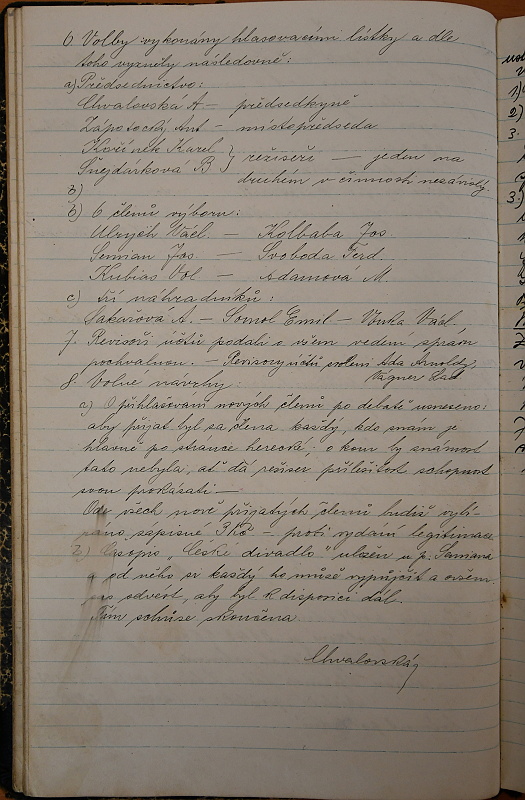 6. Volby vykonány hlasovacími lístky a dle
toho vyzněly následovně:
a) Předsednictvo:
Chvalovská A – předsedkyně
Zápotocký Ant – místopředseda
Kořínek Karel } režiseři – jeden na
Šnejdárková B } druhém v činnosti nezávislý.
b)
b) 6 členů výboru:
Ulrych Václ. – Kolbaba Jos.
Semian Jos – Svoboda Ferd.
Kubias Vol – Adamová M.
c) tří náhradníků:
Sakařová A. – Somol Emil – Vonka Václ.
7. Revisoři účtů podali o všem vedení zprávu
pochvalnou. – Revisory účtů zvoleni Ada Arnoldy,
Vagner Lad
8. Volné návrhy
a) O přihlašování nových členů po debatě usneseno:
aby přijat byl za člena každý, kdo znám je
hlavně po stránce herecké; o kom by známost
tato nebyla, ať dá režiser příležitost schopnost
svou prokázati –
Ode všech nově přijatých členů budiž vybí-
ráno zápisné 3 Kč – proti vydání legitimace
b) Časopis "České divadlo" uložen u p. Samana
a od něho si každý ho může vypůjčit a ovšem
odvést, aby byl k disposici dál.
Tím schůze skončena
Chvalovská